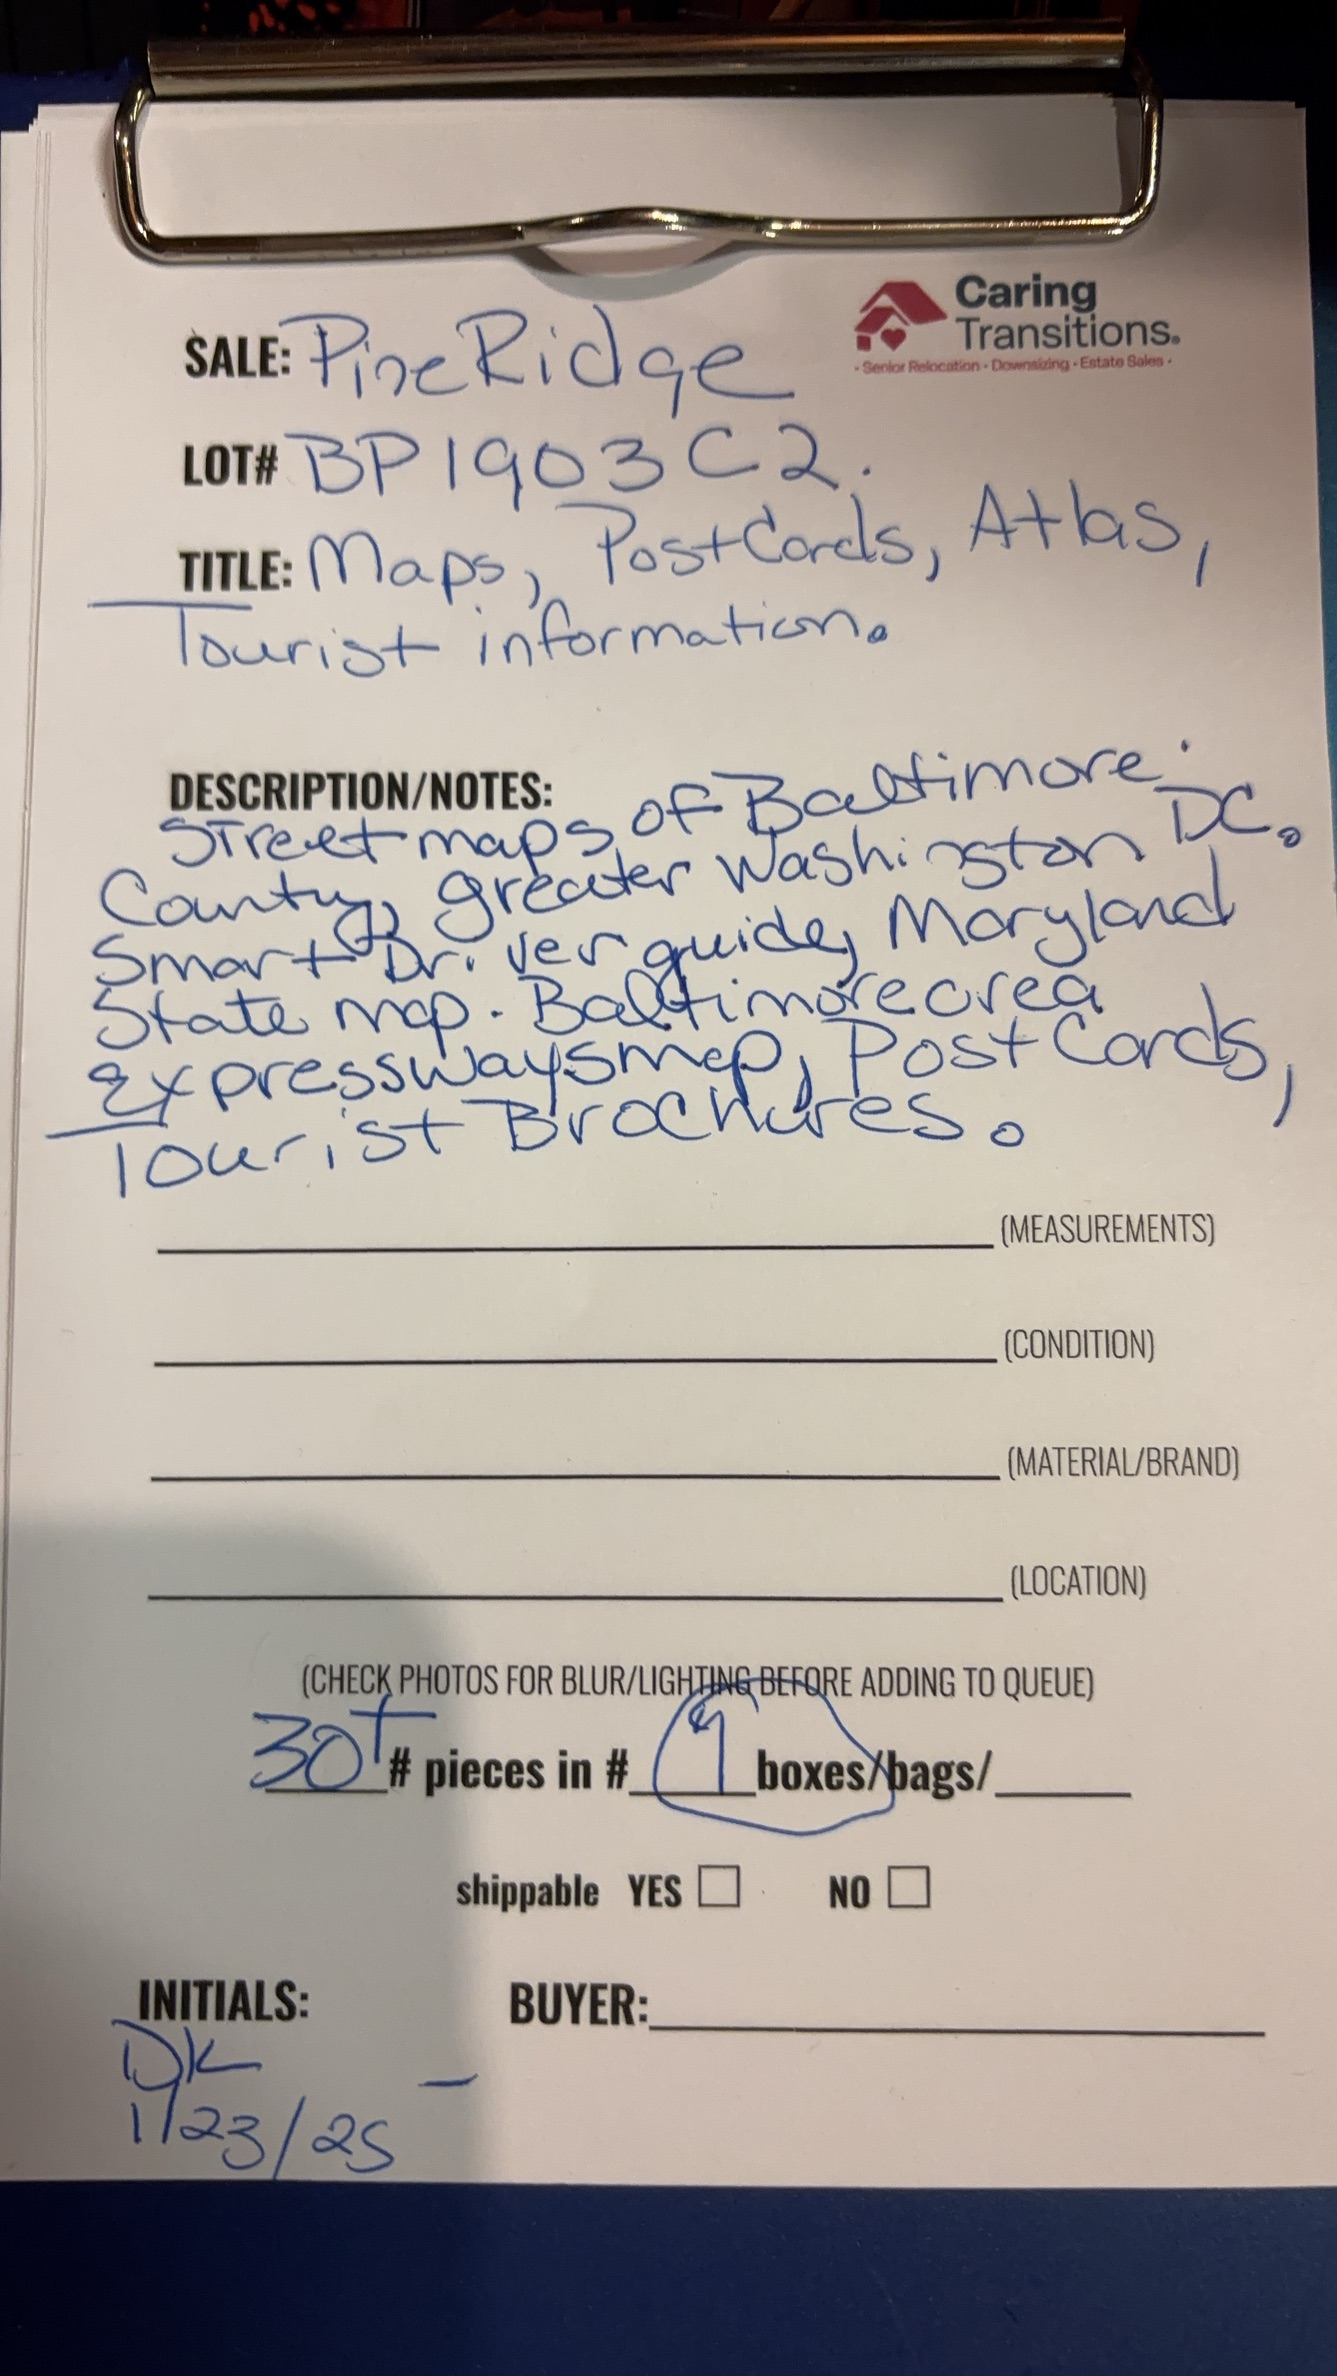 Caring
Transitions.
- Senior Relocation - Downsizing - Estate Sales -
SALE: PineRidge
LOT# BP1903C2.
TITLE: Maps, PostCards, Atlas,
Tourist information.
DESCRIPTION/NOTES:
Street maps of Baltimore
County, greater Washington DC.
Smart Driver guide, Maryland
State map. Baltimore area
Expressways map, PostCards,
Tourist Brochures.
(MEASUREMENTS)
(CONDITION)
(MATERIAL/BRAND)
(LOCATION)
(CHECK PHOTOS FOR BLUR/LIGHTING BEFORE ADDING TO QUEUE)
30+ # pieces in # 1 boxes/bags/
shippable YES ☐ NO ☐
INITIALS: BUYER:
DK
1/23/25